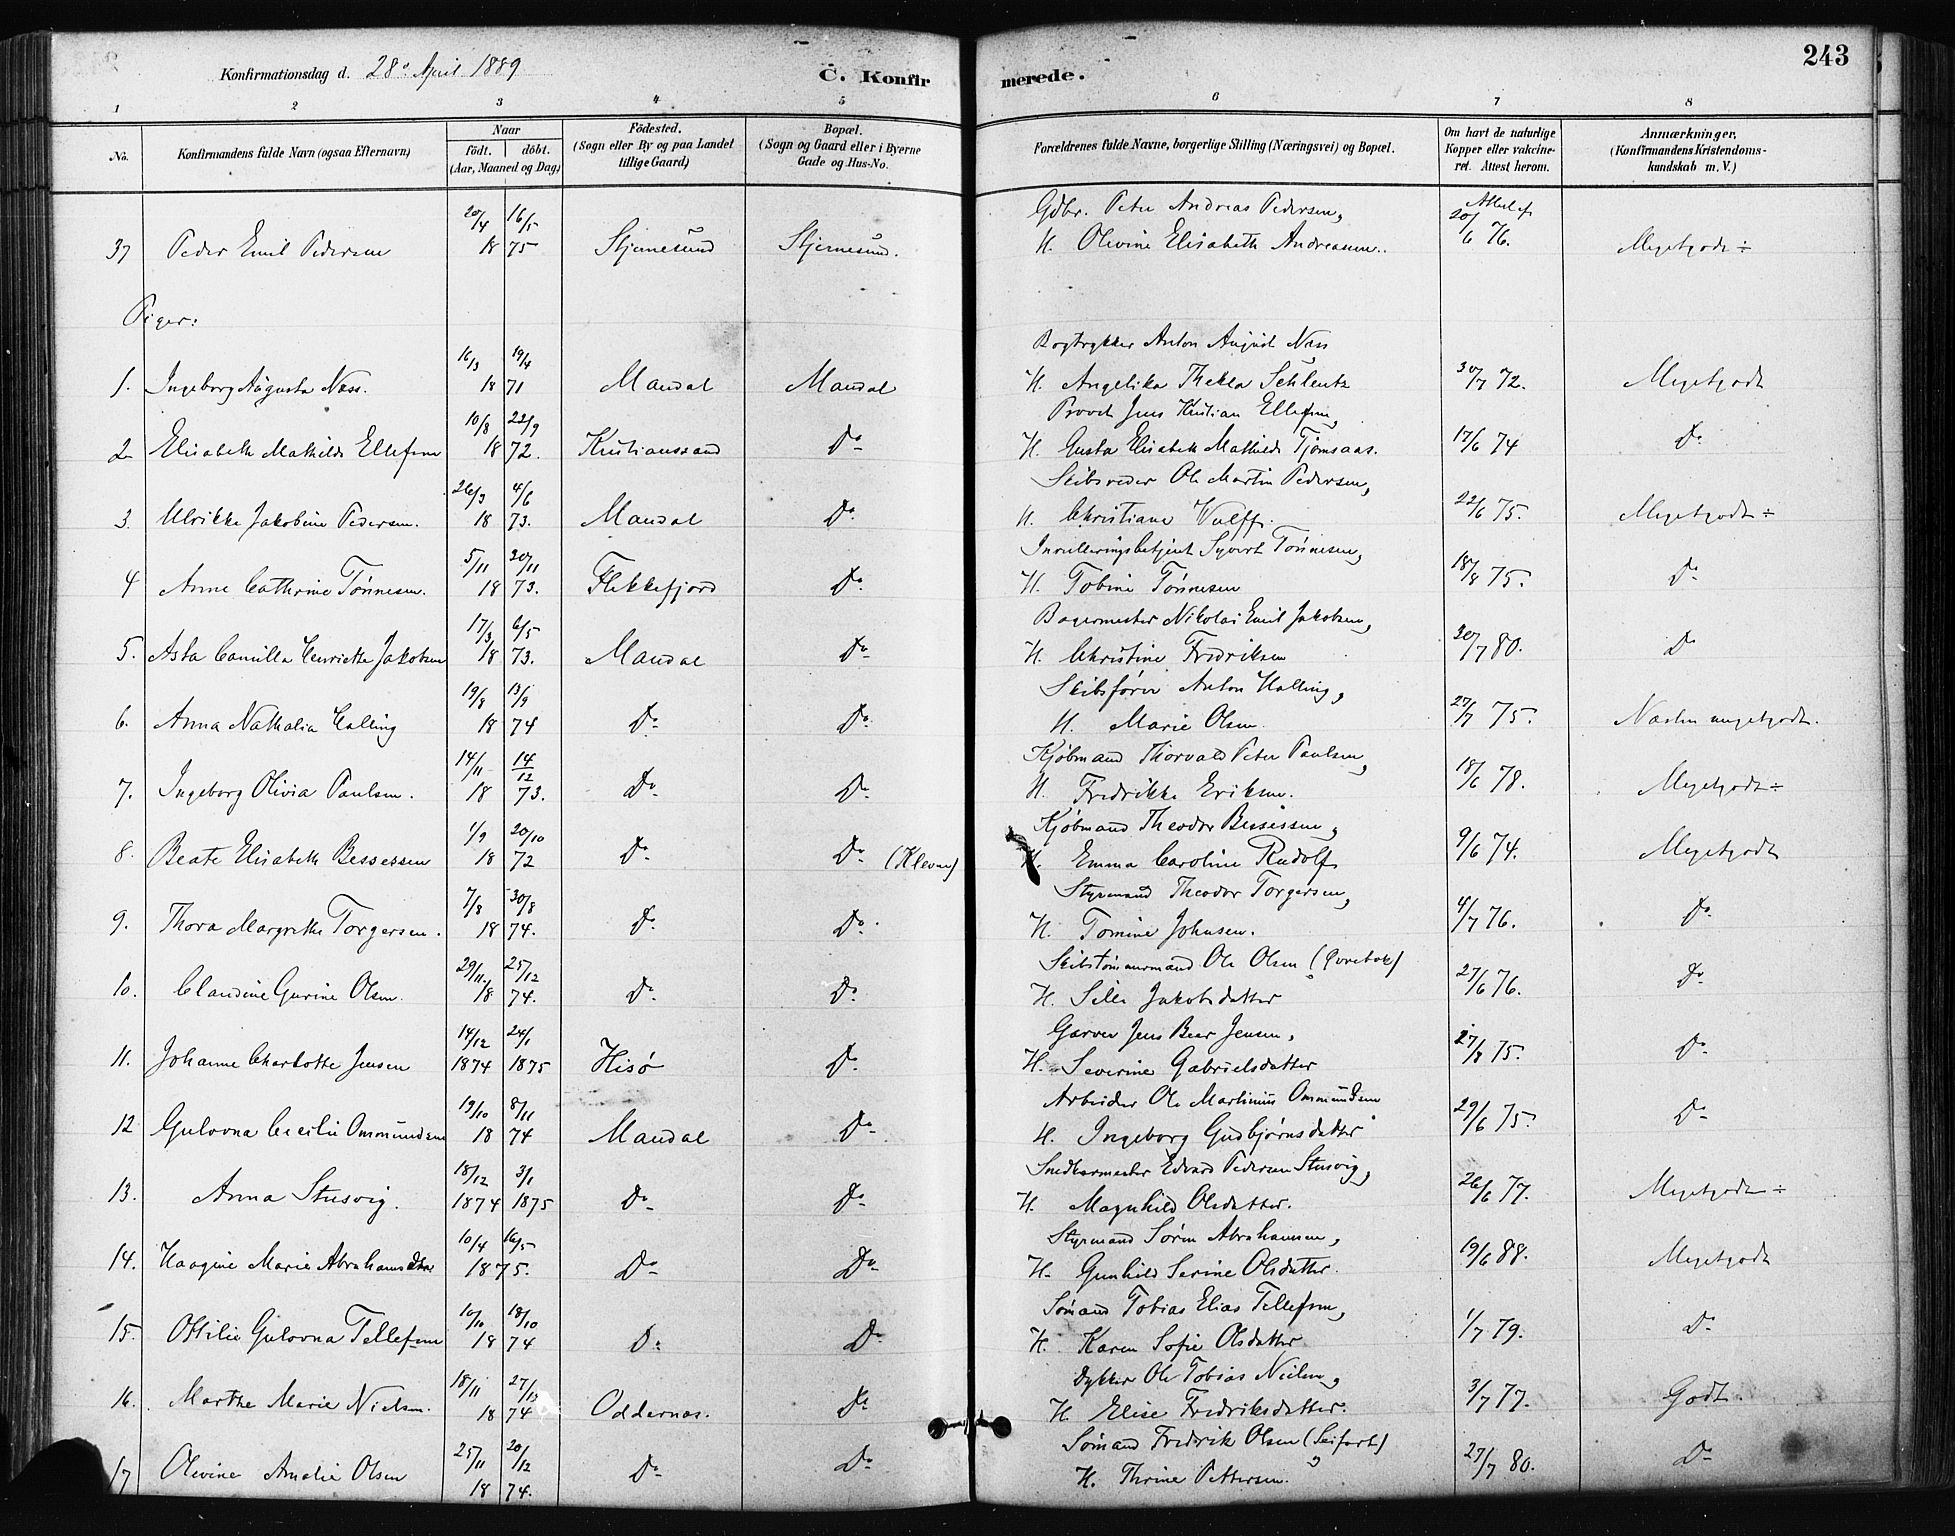 243
Konfirmationsdag d. 28de April 1889
C. Konfir merede.
1 2 3 4 5 6 7 8
No. Konfirmandens fulde Navn (ogsaa Efternavn) Naar födt. döbt. (Aar, Maaned og Dag) Födested. (Sogn eller By og paa Landet tillige Gaard) Bopæl. (Sogn og Gaard eller i Byerne Gade og Hus-No. Forældrenes fulde Navne, borgerlige Stilling (Næringsvei) og Bopæl. Om havt de naturlige Kopper eller vakcineret. Attest herom. Anmærkninger. (Konfirmandens Kristendomskundskab m. V.)
20/4 16/5 Gdbr. Peter Andreas Pedersen, Attest af
37 Peder Emil Pedersen 18 75 Stjernesund Stjernesund. H. Olivine Elisabeth Andreasen. 20/6 76. Megetgodt ÷
Piger:
16/3 19/4 Bogtrykker Anton August Næss
1. Ingeborg Augusta Næss. 18 71 Mandal Mandal H. Angelika Thekla Schlentz 30/7 72. Megetgodt
10/8 22/9 Provst Jens Kristian Ellefsen,
2 Elisabeth Mathilde Ellefsen 18 72. Kristianssand Do H. Gusta Elisabeth Mathilde Tjomsaas. 17/6 74 Do
26/3 4/6 Skibsreder Ole Martin Pedersen,
3. Ulrikke Jakobine Pedersen. 18 73. Mandal Do H. Christiane Wulff. 22/6 75. Megetgodt ÷
5/11 30/11 Inrulleringsbetjent Syvert Tønnesen,
4 Anne Cathrine Tønnesen. 18 73. Flekkefjord Do H. Tobine Tønnesen 18/8 75. Do
17/3 6/5 Bagermester Nikolai Emil Jakobsen,
5. Asta Camilla Henriette Jakobsen 18 73. Mandal Do H. Christine Fredriksen 30/7 80. Do
19/8 13/9 Skibsfører Anton Halling,
6. Anna Nathalia Halling 18 74 Do Do H. Marie Olsen. 27/7 75. Næsten megetgodt.
14/11 14/12 Kjøbmand Thorvald Peter Paulsen,
7. Ingeborg Olivia Paulsen. 18 73. Do Do H. Fredrikke Eriksen. 18/6 78. Megetgodt ÷
1/9 20/10 Kjøbmand Theodor Bessesen,
8. Beate Elisabeth Bessesen 18 72 Do Do (Kleven) H. Emma Caroline Rudolf 9/6 74. Megetgodt
7/8 30/8 Styrmand Theodor Torgersen,
9. Thora Margrethe Torgersen. 18 74. Do Do H. Tomine Johnsen. 4/7 76. Do
29/11 25/12 Skibstømmermand Ole Olsen (Øvrebøe)
10. Claudine Gurine Olsen. 18 74. Do Do H. Silli Jakobsdatter 27/6 76. Do
14/12 24/1 Garver Jens Beer Jensen,
11. Johanne Charlotte Jensen 1874 1875 Hisø Do H. Severine Gabrielsdatter 27/8 75. Do
19/10 8/11 Arbeider Ole Martinius Ommundsen
12 Gulovna Cecilie Ommundsen 18 74 Mandal Do H. Ingeborg Gudbjørnsdatter 29/6 75. Do
18/12 3/1 Snedkermester Edvard Pedersen Stusvig,
13. Anna Stusvig. 1874 1875 Do Do H. Magnhild Olsdatter. 26/6 77. Megetgodt ÷
10/4 16/5 Styrmand Søren Abrahamsen,
14. Haagine Marie Abrahamsen 1875. Do Do H. Gunhild Serine Olsdatter. 19/6 88. Megetgodt
10/10 18/10 Sømand Tobias Elias Tellefsen,
15. Ottilie Gulovna Tellefsen 18 74 Do Do H. Karen Sofie Olsdatter 1/7 79. Do
18/11 27/12 Dykker Ole Tobias Nielsen,
16. Marthe Marie Nielsen. 18 74 Oddernæs. Do H. Elise Fredriksdatter. 3/7 77. Godt.
25/11 20/12 Sømand Fredrik Olsen (Seifart)
17 Olevine Amalie Olsen 18 74. Do Do H. Thrine Pettersen. 27/7 80. Do